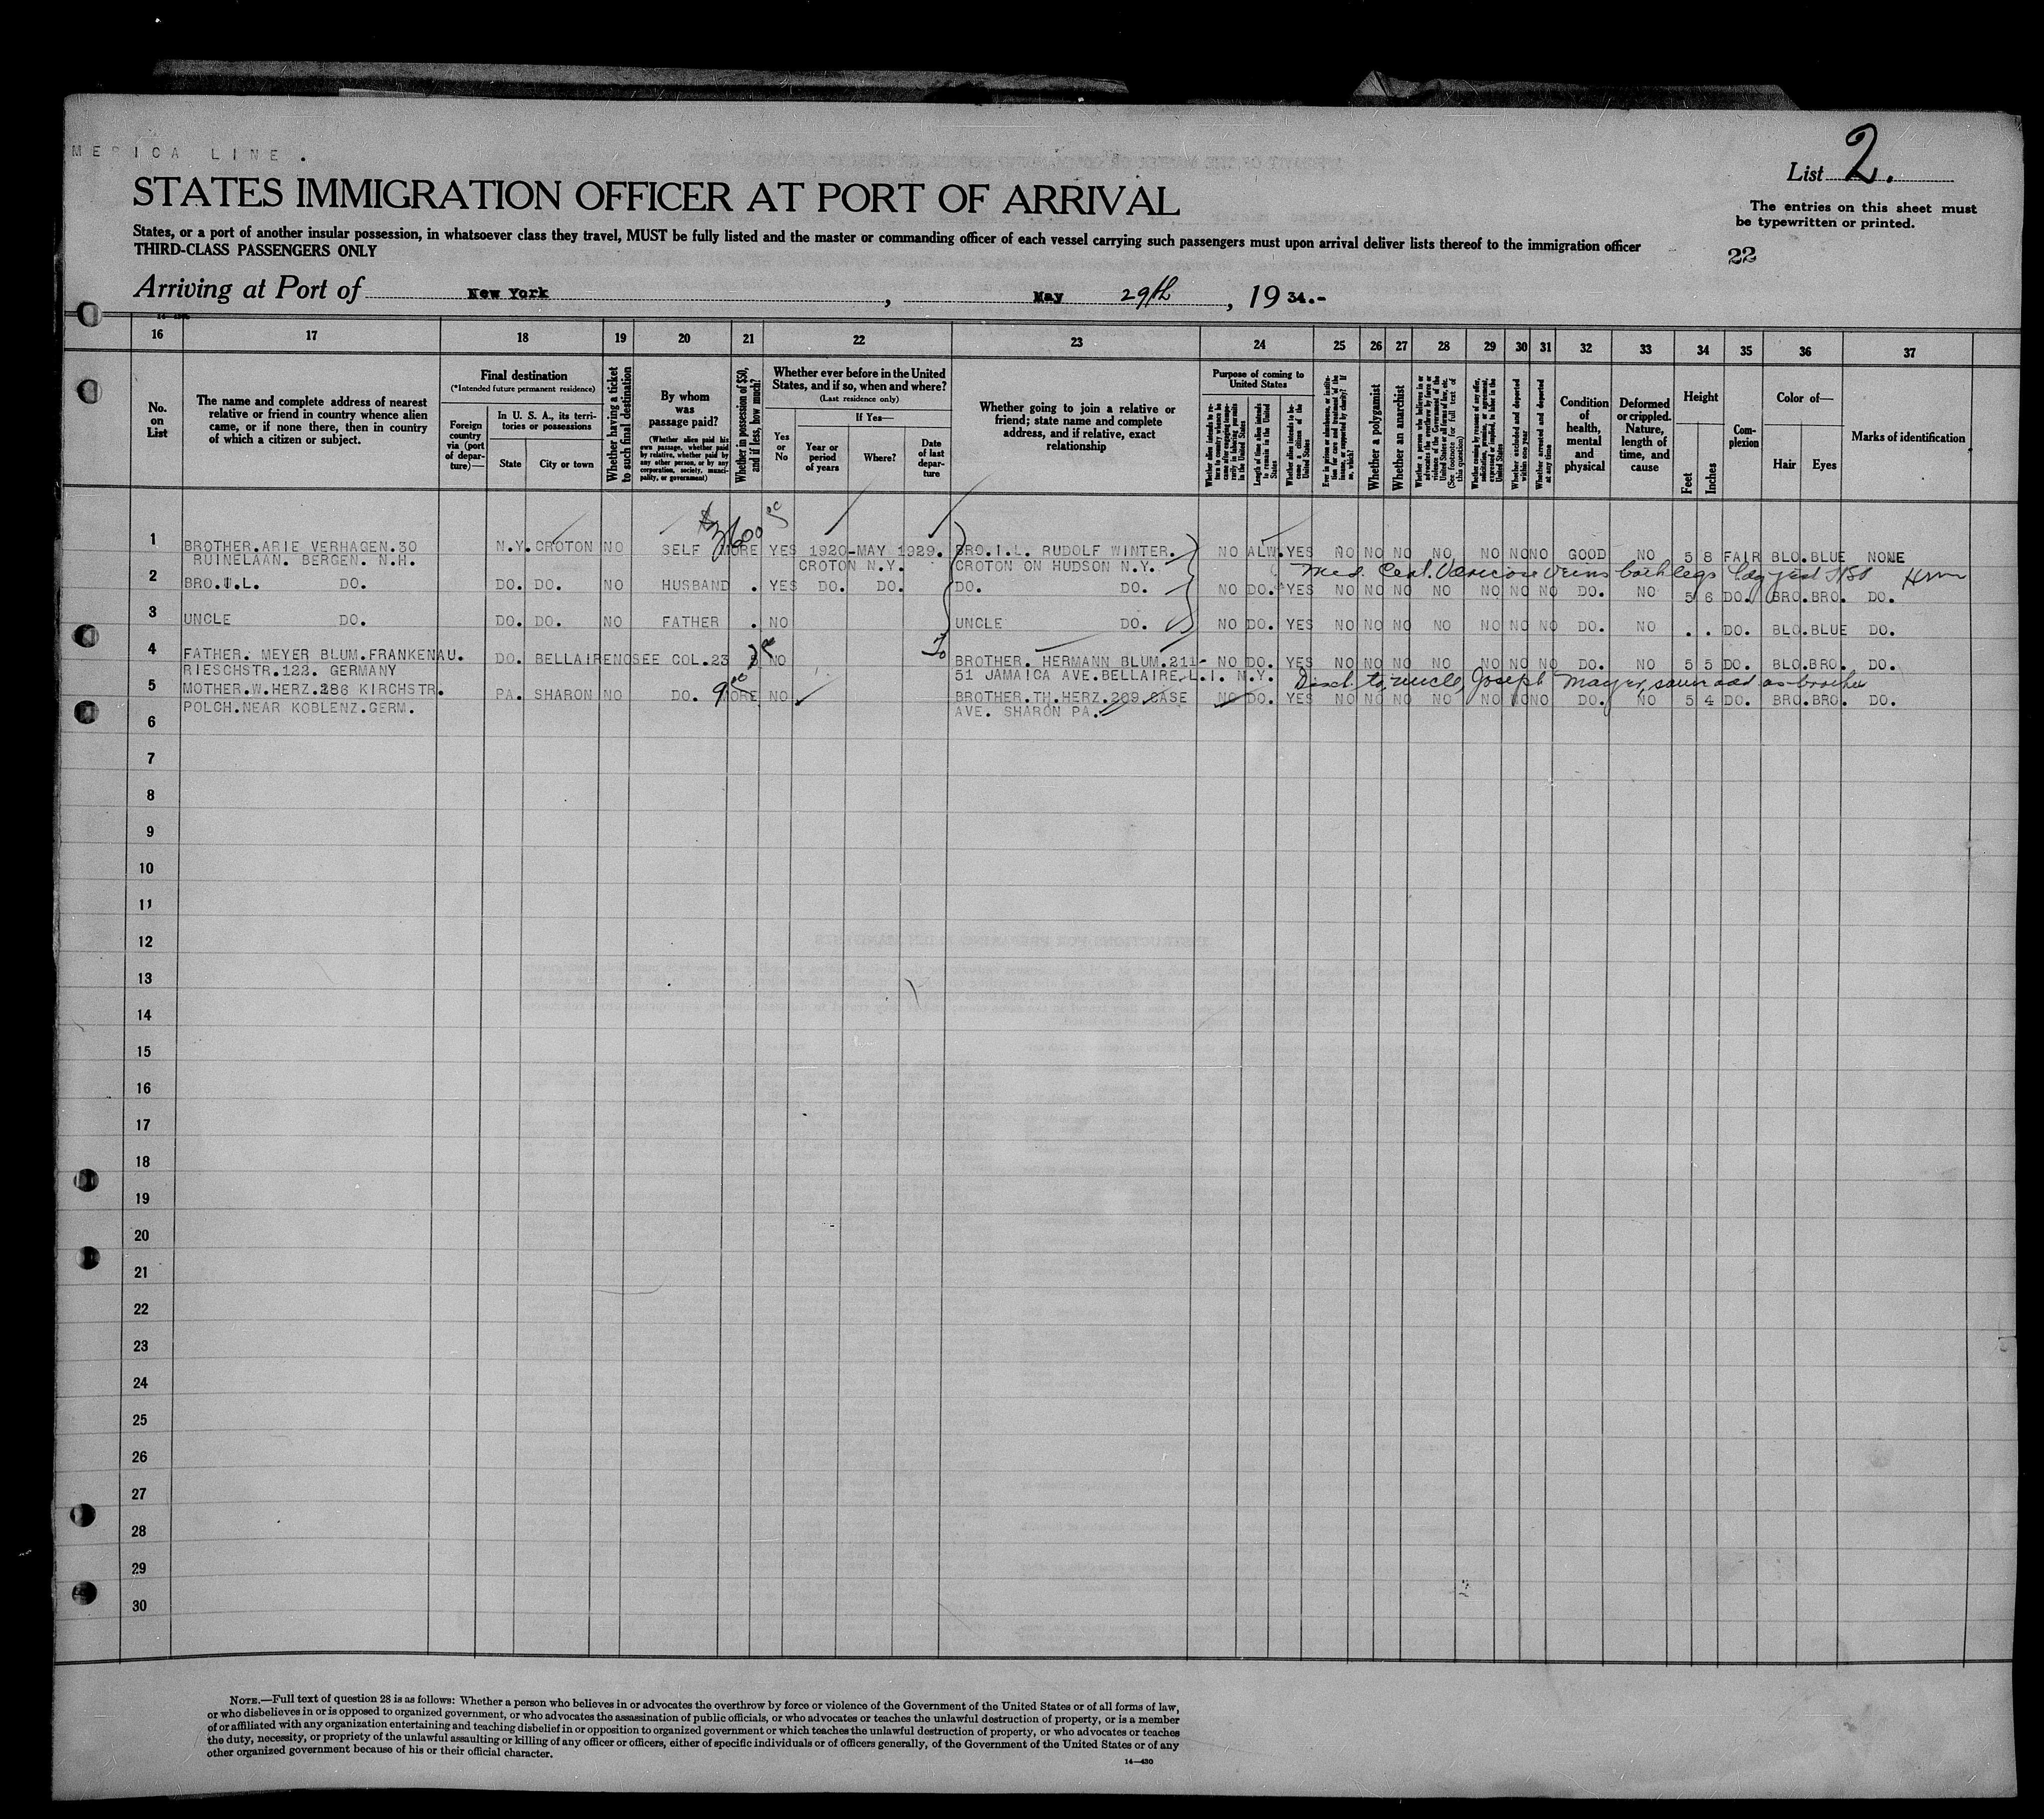 MERICA LINE.
List 2.
STATES IMMIGRATION OFFICER AT PORT OF ARRIVAL
The entries on this sheet must
be typewritten or printed.
States, or a port of another insular possession, in whatsoever class they travel, MUST be fully listed and the master or commanding officer of each vessel carrying such passengers must upon arrival deliver lists thereof to the immigration officer
THIRD-CLASS PASSENGERS ONLY
22
Arriving at Port of New York, May 29th, 19 34.-
16 17 18 19 20 21 22 23 24 25 26 27 28 29 30 31 32 33 34 35 36 37
No. on List
The name and complete address of nearest
relative or friend in country whence alien
came, or if none there, then in country
of which a citizen or subject.
Final destination
(*Intended future permanent residence)
Foreign country via (port of departure)—
In U. S. A., its territories or possessions
State
City or town
Whether having a ticket to such final destination
By whom was passage paid?
(Whether alien paid his own passage, whether paid by relative, whether paid by any other person, or by any corporation, society, municipality, or government)
Whether in possession of $50, and if less, how much?
Whether ever before in the United
States, and if so, when and where?
(Last residence only)
Yes or No
If Yes—
Year or period of years
Where?
Date of last departure
Whether going to join a relative or
friend; state name and complete
address, and if relative, exact
relationship
Purpose of coming to United States
Whether alien intends to return to country whence he came after engaging temporarily in laboring pursuits in the United States
Length of time alien intends to remain in the United States
Whether alien intends to become a citizen of the United States
Ever in prison or almshouse, or institution for care and treatment of the insane, or supported by charity? If so, which?
Whether a polygamist
Whether an anarchist
Whether a person who believes in or advocates the overthrow by force or violence of the Government of the United States or all forms of law, etc. (See footnote for full text of this question)
Whether coming by reason of any offer, solicitation, promise, or agreement, expressed or implied, to labor in the United States
Whether excluded and deported within one year
Whether arrested and deported at any time
Condition of health, mental and physical
Deformed or crippled. Nature, length of time, and cause
Height
Feet
Inches
Complexion
Color of—
Hair
Eyes
Marks of identification
1 BROTHER.ARIE VERHAGEN.30 N.Y. CROTON NO SELF MORE YES 1920-MAY 1929. BRO.I.L. RUDOLF WINTER. NO ALW. YES NO NO NO NO NO NO NO GOOD NO 5 8 FAIR BLO. BLUE NONE
RUINELAAN. BERGEN. N.H. CROTON N.Y. CROTON ON HUDSON N.Y.
Med. Cert. Varicose veins both legs
2 BRO.I.L. DO. DO. DO. NO HUSBAND . YES DO. DO. DO. DO. NO DO. YES NO NO NO NO NO NO NO DO. NO 5 6 DO. BRO. BRO. DO.
3 UNCLE DO. DO. DO. NO FATHER . NO UNCLE DO. NO DO. YES NO NO NO NO NO NO NO DO. NO . . DO. BLO. BLUE DO.
4 FATHER. MEYER BLUM.FRANKENAU. DO. BELLAIRE NO SEE COL.23 NO BROTHER. HERMANN BLUM.211- NO DO. YES NO NO NO NO NO NO NO DO. NO 5 5 DO. BLO. BRO. DO.
RIESCHSTR.122. GERMANY 51 JAMAICA AVE.BELLAIRE.L.I. N.Y.
Disch to uncle, Joseph Mayer, same add as brother
5 MOTHER.W.HERZ.286 KIRCHSTR. PA. SHARON NO DO. MORE NO BROTHER.TH.HERZ.209 CASE NO DO. YES NO NO NO NO NO NO NO DO. NO 5 4 DO. BRO. BRO. DO.
POLCH.NEAR KOBLENZ.GERM. AVE. SHARON PA.
6
7
8
9
10
11
12
13
14
15
16
17
18
19
20
21
22
23
24
25
26
27
28
29
30
NOTE.—Full text of question 28 is as follows: Whether a person who believes in or advocates the overthrow by force or violence of the Government of the United States or of all forms of law,
or who disbelieves in or is opposed to organized government, or who advocates the assassination of public officials, or who advocates or teaches the unlawful destruction of property, or is a member
of or affiliated with any organization entertaining and teaching disbelief in or opposition to organized government or which teaches the unlawful destruction of property, or who advocates or teaches
the duty, necessity, or propriety of the unlawful assaulting or killing of any officer or officers, either of specific individuals or of officers generally, of the Government of the United States or of any
other organized government because of his or their official character.
14—430